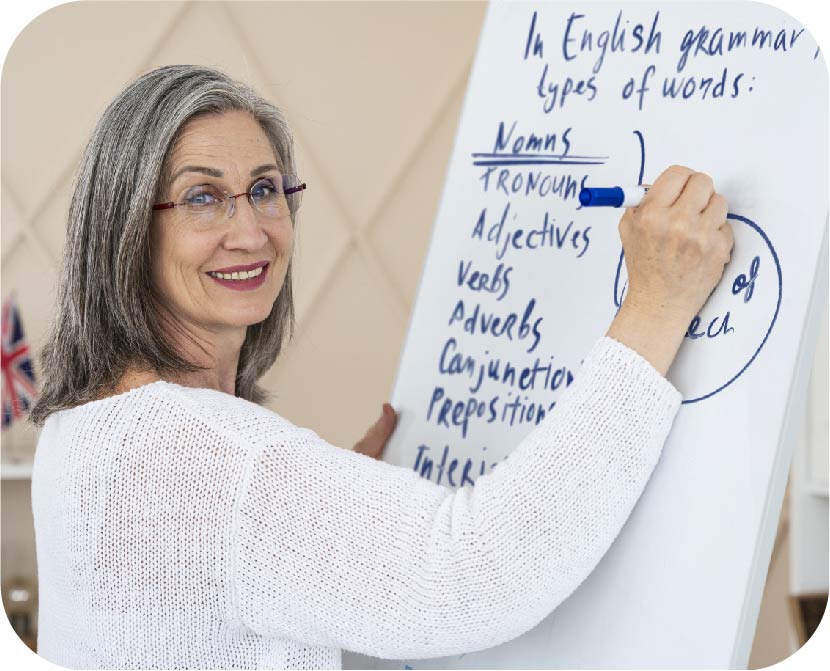 In English grammar,
types of words:
Nomns
TRONOUNS
Adjectives
Verbs
Adverbs
Conjunction
Prepositions
Interj
of
ech